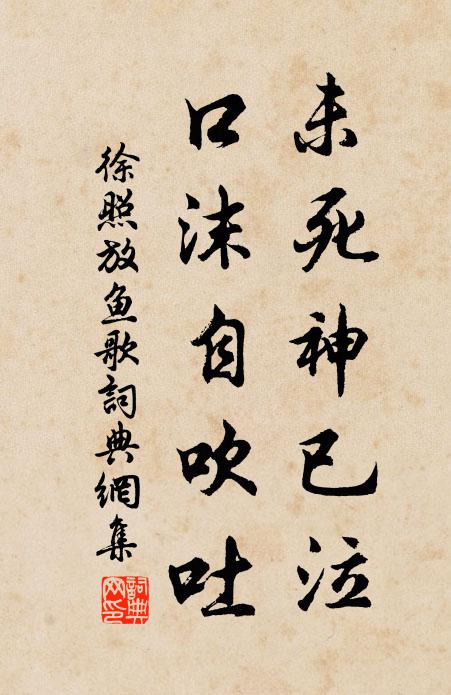 未死神已泣
口沫自吹吐
徐照放魚歌詞典網集
詞典網印